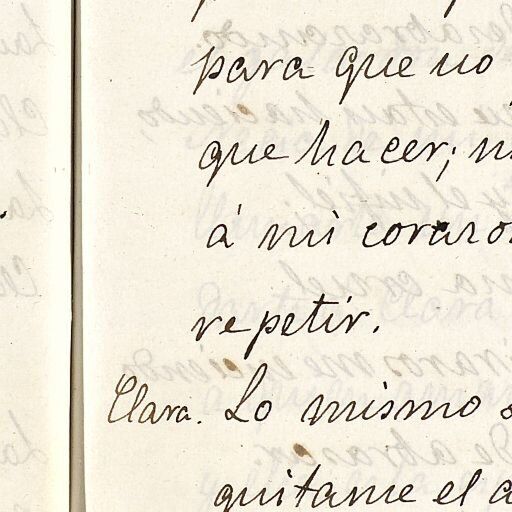 para que no
que hacer;
á mi corazon
repetir.
Clara. Lo mismo
quitame el